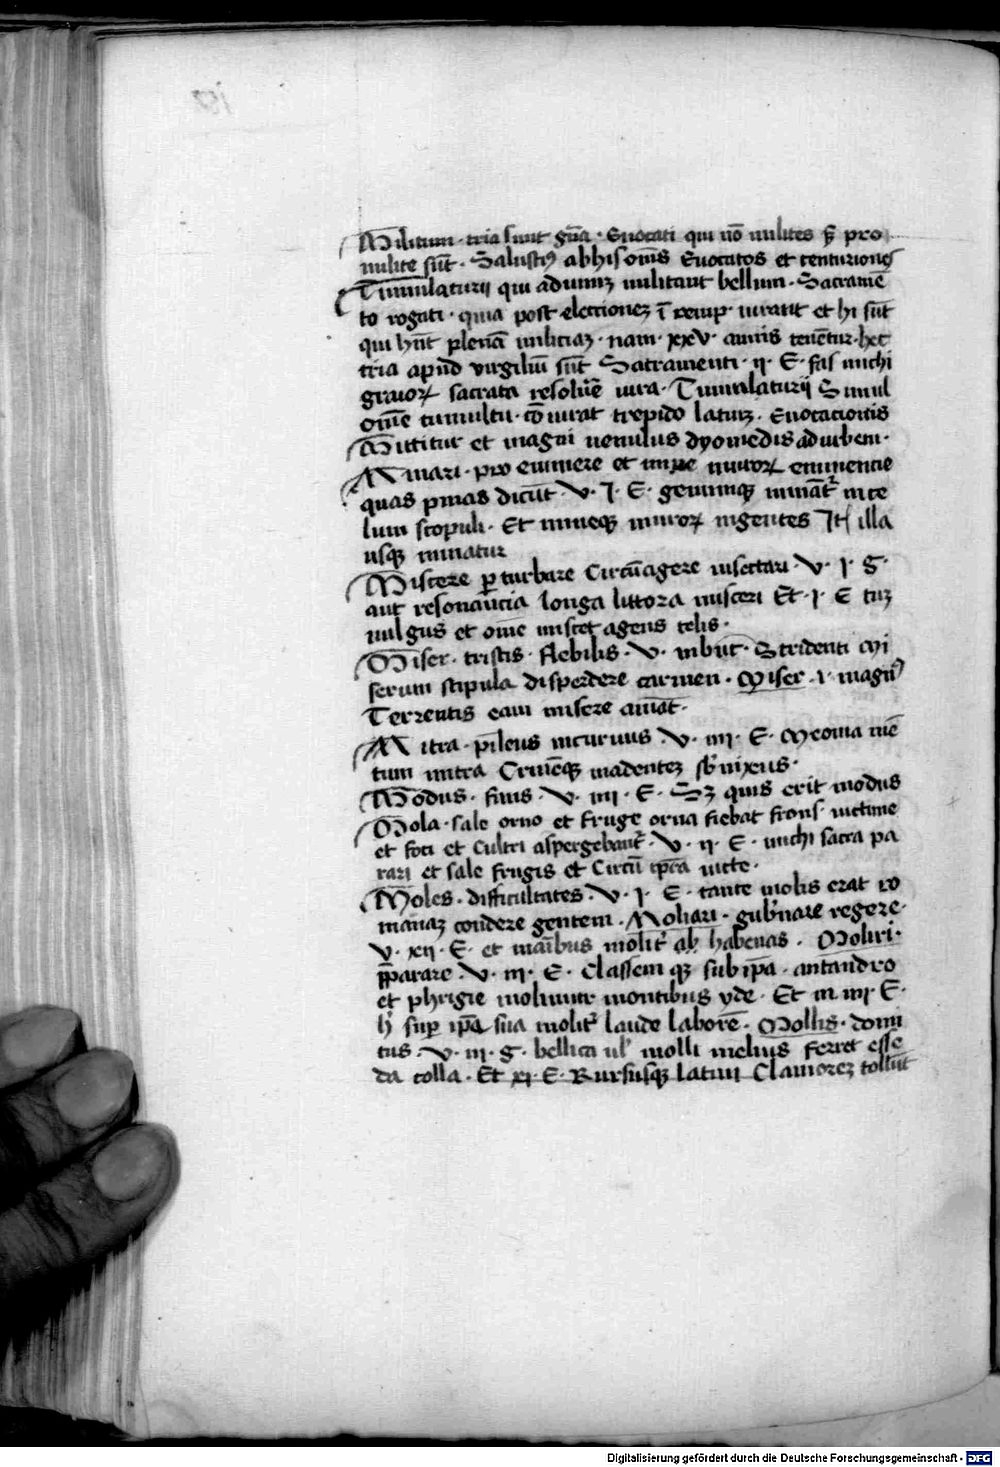 Militum · tria sunt gn̄a · Euocati qui nō milites s̄ʒ pro
milite sūt · Salusti᷒ ab his om̄s Euocatos et centuriones
Tumulaturij qui ad unuʒ militant bellum · Sacramē
to rogati · quia post electioneʒ ī reip · iurant et hi sūt
qui hn̄t plenā miliciaʒ · nam · xxv · annis tenētur · hec
tria apud virgiliū sūt Sacramenti · ij · E · fas michi
graioꝝ sacrata resoluē iura · Tumulaturij Simul
om̄e tumultu · cō iurat trepido latiuʒ · Euocationis
Mittitur et magni uenulus dyomedis ad urbem ·
Minari · pro eminere et mine muroꝝ eminencie
quas pinnas dicūt · V · J · E · geminiqʒ mināt᷑ in ce
lum scopuli · Et mineqʒ muroꝝ ingentes Jt illa
usqʒ minatur
Miscere ꝑturbare Circūagere insectari · V · J · G ·
aut resonancia longa littora misceri Et · J · E tuʒ
uulgus et om̄e miscet agens telis ·
Miser · tristis · flebilis · V · in būc · Stridenti mi
serum stipula disperdere carmen · Miser · i · magn᷒
Terrentis eam misere amāt ·
Mitra · pileus incuruus · V · iiij · E · Meonia mē
tum mitra Crinēqʒ madenteʒ sb̄nixus ·
Modus · finis · V · iiij · E · Sʒ quis erit modus
Mola · sale orno et fruge orna fiebat frons · uictime
et foci et Cultri aspergebant᷑ · V · ij · E · michi sacra pa
rari et sale frugis et Circū tꝑa uicte ·
Moles · difficultates · V · J · E · tante molis erat ro
manaʒ condere gentem · Moliari · gub̄nare regere ·
V · xij · E · et manibus molit᷑ ab habenas · Moliri ·
p̄parare · V · iij · E · Classem qʒ sub ip̄a · antandro
et phrigie molimur montibus yde · Et in iiij E ·
h᷑ suꝑ ip̄a sua molit᷑ laude laborē · Mollis · domi
tus · V · iij · G · bellica ul᷑ molli melius ferret esse
da colla · Et xj · E · Rursusqʒ latini Clamoreʒ tollūt
Digitalisierung gefördert durch die Deutsche Forschungsgemeinschaft - DFG